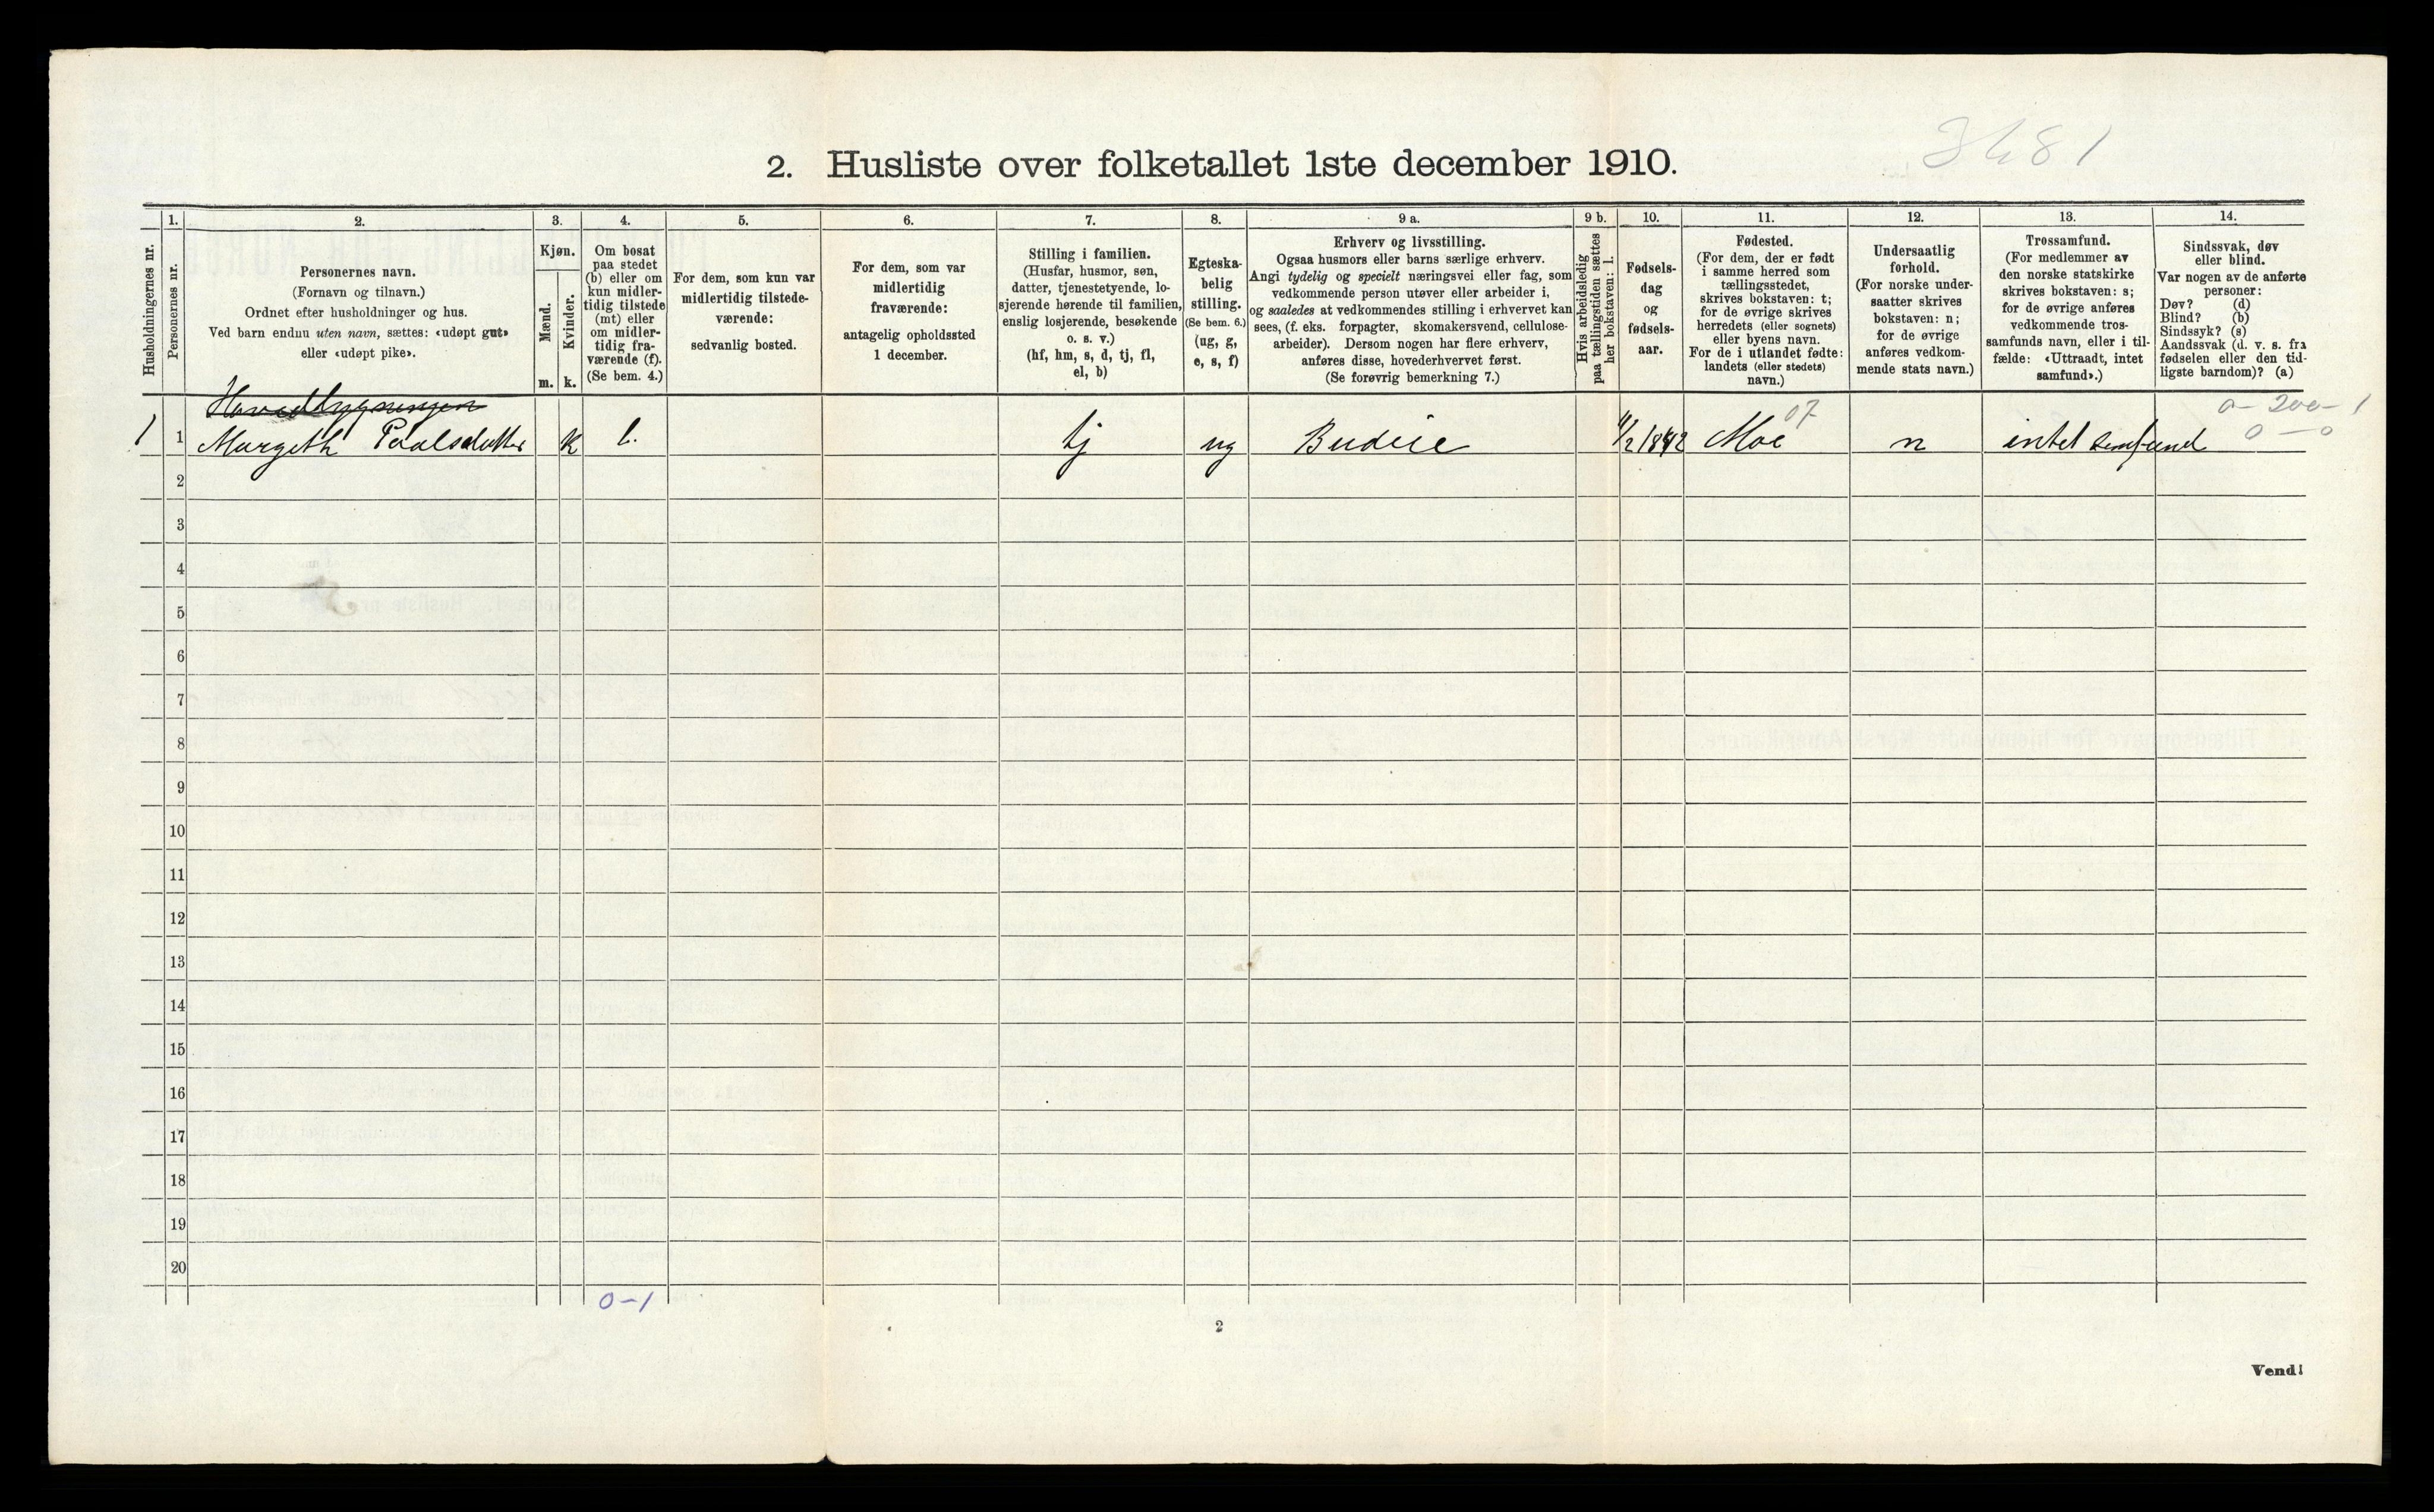 3481
2. Husliste over folketallet 1ste december 1910.
Husholdningernes nr.
1.
Personernes nr.
2.
Personernes navn.
(Fornavn og tilnavn.)
Ordnet efter husholdninger og hus.
Ved barn endnu uten navn, sættes: «udøpt gut»
eller «udøpt pike».
3.
Kjøn.
Mænd.
Kvinder.
m. k.
4.
Om bosat
paa stedet
(b) eller om
kun midler-
tidig tilstede
(mt) eller
om midler-
tidig fra-
værende (f).
(Se bem. 4.)
5.
For dem, som kun var
midlertidig tilstede-
værende:
sedvanlig bosted.
6.
For dem, som var
midlertidig
fraværende:
antagelig opholdssted
1 december.
7.
Stilling i familien.
(Husfar, husmor, søn,
datter, tjenestetyende, lo-
sjerende hørende til familien,
enslig losjerende, besøkende
o. s. v.)
(hf, hm, s, d, tj, fl,
el, b)
8.
Egteska-
belig
stilling.
(Se bem. 6.)
(ug, g,
e, s, f)
9 a.
Erhverv og livsstilling.
Ogsaa husmors eller barns særlige erhverv.
Angi tydelig og specielt næringsvei eller fag, som
vedkommende person utøver eller arbeider i,
og saaledes at vedkommendes stilling i erhvervet kan
sees, (f. eks. forpagter, skomakersvend, cellulose-
arbeider). Dersom nogen har flere erhverv,
anføres disse, hovederhvervet først.
(Se forøvrig bemerkning 7.)
9 b.
Hvis arbeidsledig
paa tællingstiden sættes
her bokstaven: l.
10.
Fødsels-
dag
og
fødsels-
aar.
11.
Fødested.
(For dem, der er født
i samme herred som
tællingsstedet,
skrives bokstaven: t;
for de øvrige skrives
herredets (eller sognets)
eller byens navn.
For de i utlandet fødte:
landets (eller stedets)
navn.)
12.
Undersaatlig
forhold.
(For norske under-
saatter skrives
bokstaven: n;
for de øvrige
anføres vedkom-
mende stats navn.)
13.
Trossamfund.
(For medlemmer av
den norske statskirke
skrives bokstaven: s;
for de øvrige anføres
vedkommende tros-
samfunds navn, eller i til-
fælde: «Uttraadt, intet
samfund».)
14.
Sindssvak, døv
eller blind.
Var nogen av de anførte
personer:
Døv? (d)
Blind? (b)
Sindssyk? (s)
Aandssvak (d. v. s. fra
fødselen eller den tid-
ligste barndom)? (a)
Hovedbygningen
07 0-200-1
1 1 Margeth Paalsdatter k b. tj ug Budeie Moe n intet samfund 0-0
2
3
4
5
6
7
8
9
10
11
12
13
14
15
16
17
18
19
20
0-1
2
Vend!